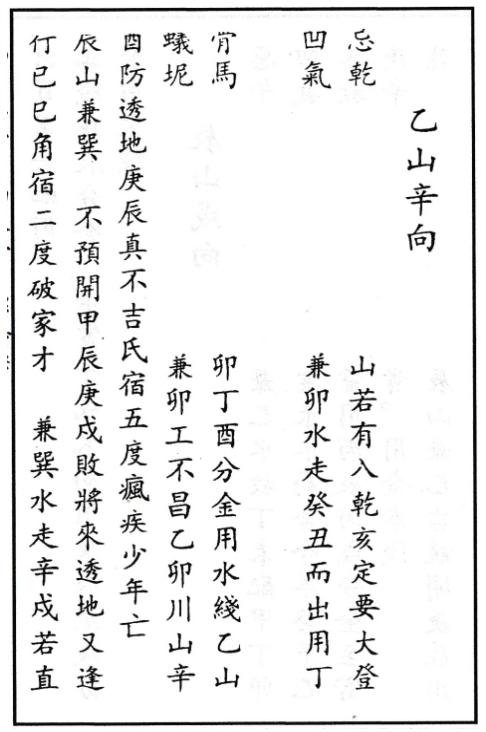 乙山辛向
忌乾　山若有八乾亥定要大登
凹氣　兼卯水走癸丑而出用丁
肖馬　卯丁酉分金用水綫乙山
蟻坭　兼卯工不昌乙卯川山辛
酉防透地庚辰真不吉氏宿五度瘋疾少年亡
辰山兼巽　不預開甲辰庚戌敗將來透地又逢
仃已巳角宿二度破家才　兼巽水走辛戌若直